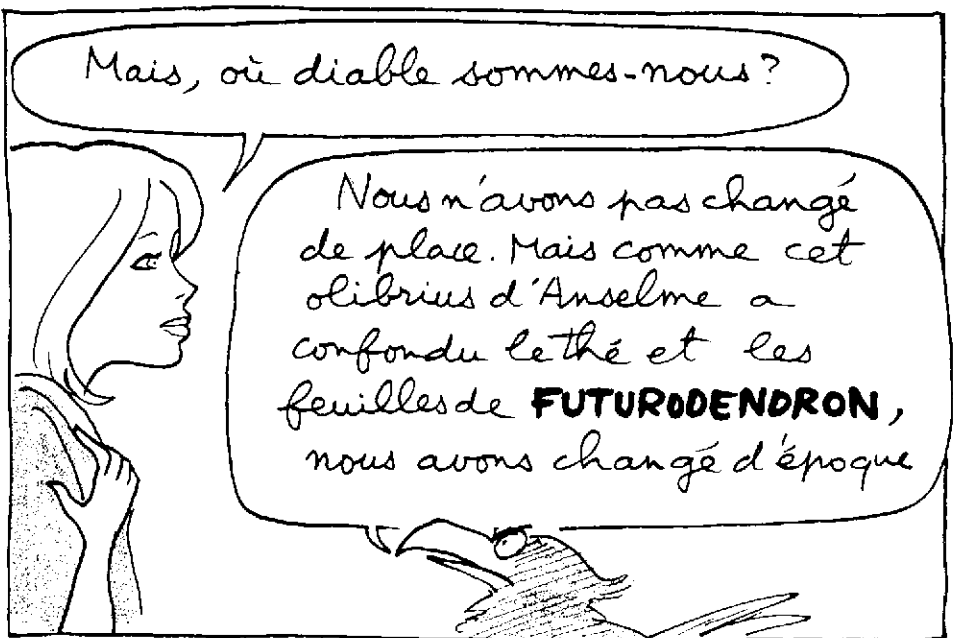 Mais, où diable sommes-nous?
Nous n'avons pas changé
de place. Mais comme cet
olibrius d'Anselme a
confondu le thé et les
feuilles de FUTURODENDRON,
nous avons changé d'époque